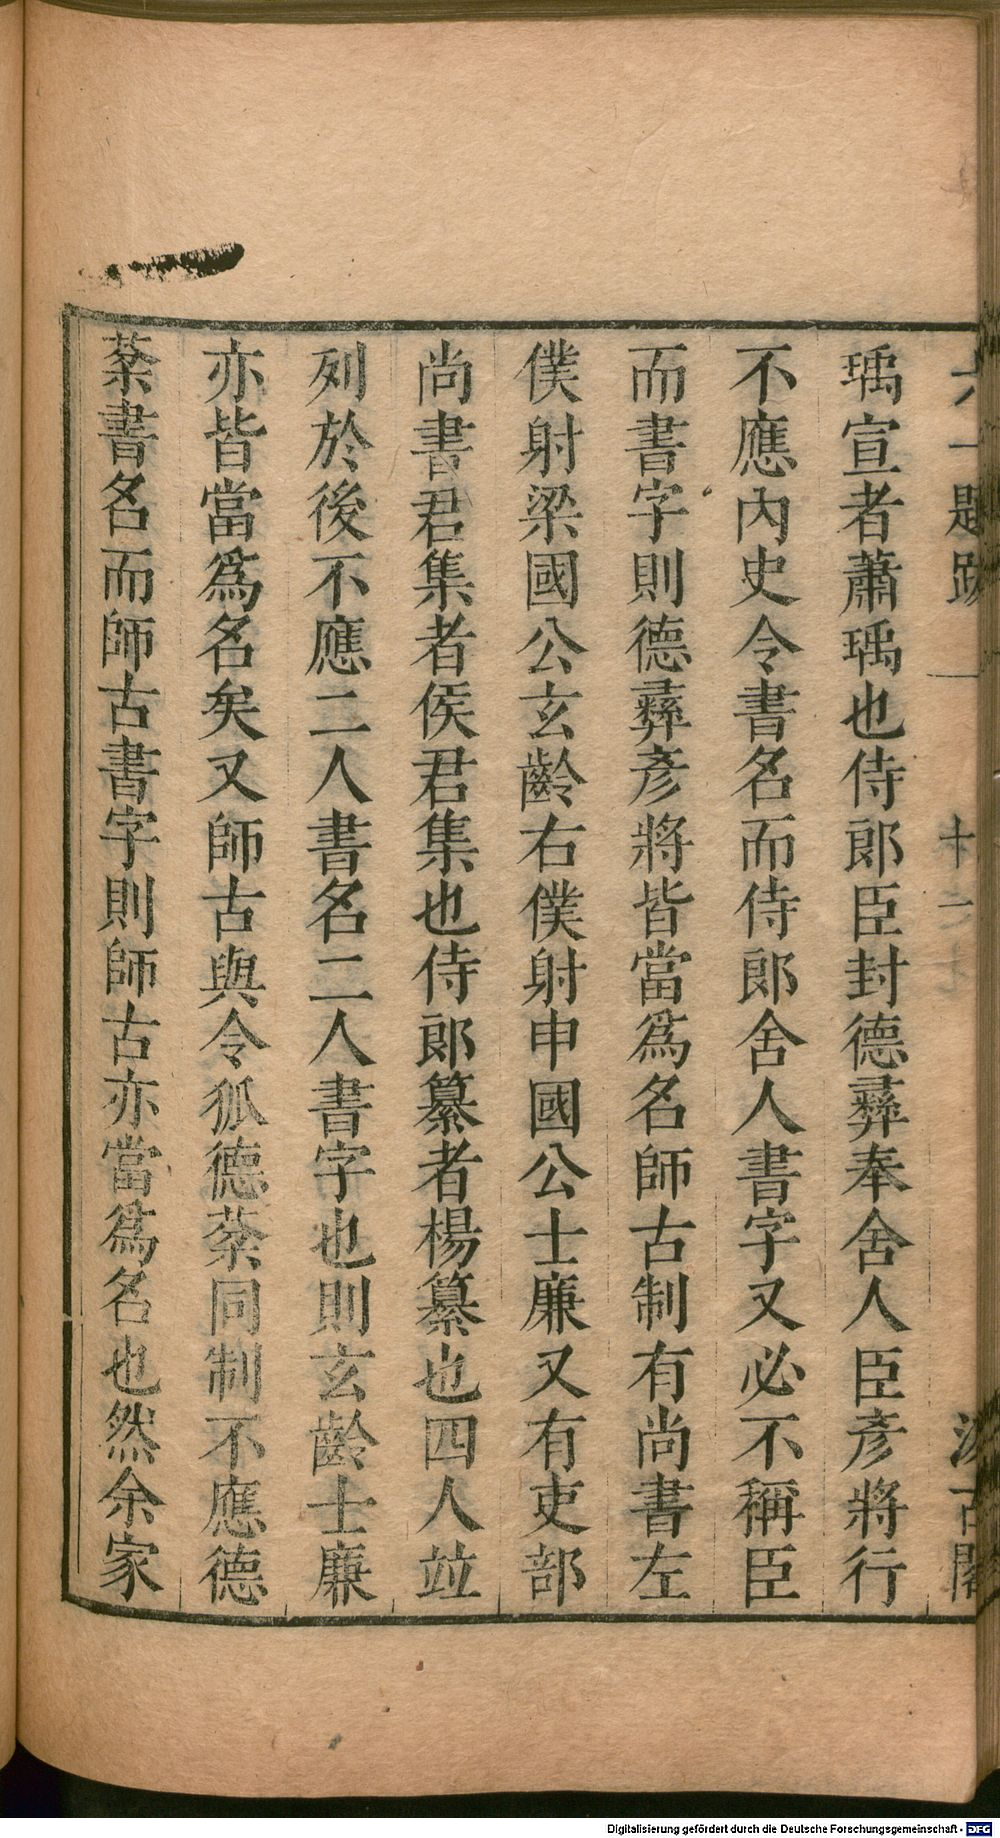 六一題跋
瑀宣者蕭瑀也侍郎臣封德彝奉舍人臣彥將行
不應內史令書名而侍郎舍人書字又必不稱臣
而書字則德彝彥將皆當爲名師古制有尚書左
僕射梁國公玄齡右僕射申國公士廉又有吏部
尚書君集者侯君集也侍郎纂者楊纂也四人竝
列於後不應二人書名二人書字也則玄齡士廉
亦皆當爲名矣又師古與令狐德棻同制不應德
棻書名而師古書字則師古亦當爲名也然余家
Digitalisierung gefördert durch die Deutsche Forschungsgemeinschaft - DFG